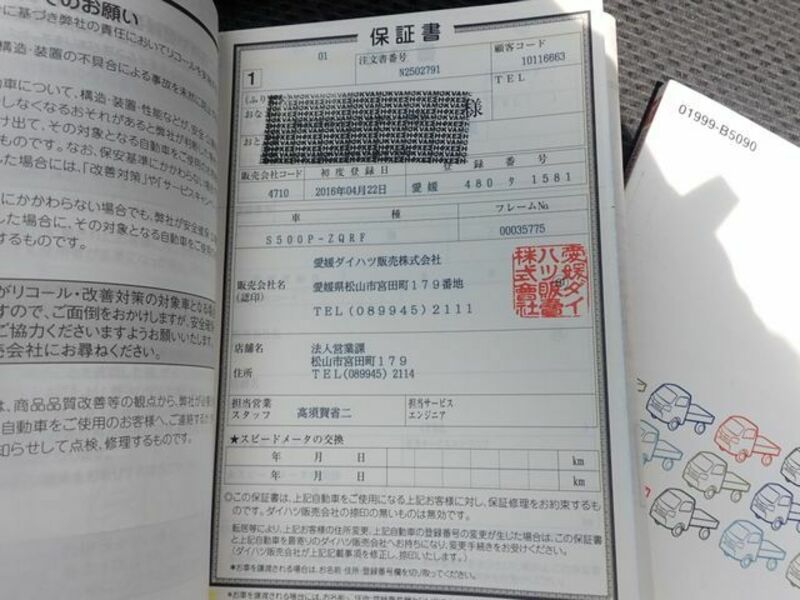 てのお願い
に基づき弊社の責任においてリコールを実施
構造・装置の不具合による事故を未然に
車について、構造・装置・性能などが、安全
しなくなるおそれがあると弊社が判断
け出て、その対象となる自動車をご使用の
ものです。なお、保安基準にかかわらない場合
した場合には、「改善対策」や「サービスキャンペーン
にかかわらない場合でも、弊社が安全確保
した場合に、その対象となる自動車をご使用
するものです。
がリコール・改善対策の対象車となる場合
すので、ご面倒をおかけしますが、安全確保
ご協力くださいますようお願いいたします。
売会社にお尋ねください。
は、商品品質改善等の観点から、弊社が必要
自動車をご使用のお客様へ、ご連絡するか
知らせして点検、修理するものです。
保証書
1
01
注文書番号
N2502791
顧客コード
10116663
TEL
(ふり
おな
様
おと
販売会社コード
初度登録日
登録番号
4710
2016年04月22日
愛媛 480 タ 1581
車種
フレームNo.
S500P-ZQRF
00035775
販売会社名
(認印)
愛媛ダイハツ販売株式会社
愛媛県松山市宮田町179番地
TEL(089945)2111
愛媛ダイ
ハツ販賣
株式會社
店舗名
法人営業課
松山市宮田町179
住所
TEL(089945) 2114
担当営業
スタッフ
高須賀省二
担当サービス
エンジニア
★スピードメータの交換
年 月 日 km
年 月 日 km
◎この保証書は、上記自動車をご使用になる上記お客様に対し、保証修理をお約束するも
のです。ダイハツ販売会社の捺印の無いものは無効です。
転居等により、上記お客様の住所変更、上記自動車の登録番号の変更が生じた場合は、この保証書
と上記自動車を最寄りのダイハツ販売会社へお持ちになり、変更手続きをお受けください。
(ダイハツ販売会社が上記記載事項を修正し、捺印いたします。)
★お車を譲渡される場合は、お名前・住所・登録番号欄を切り取ってください。
01999-B5090